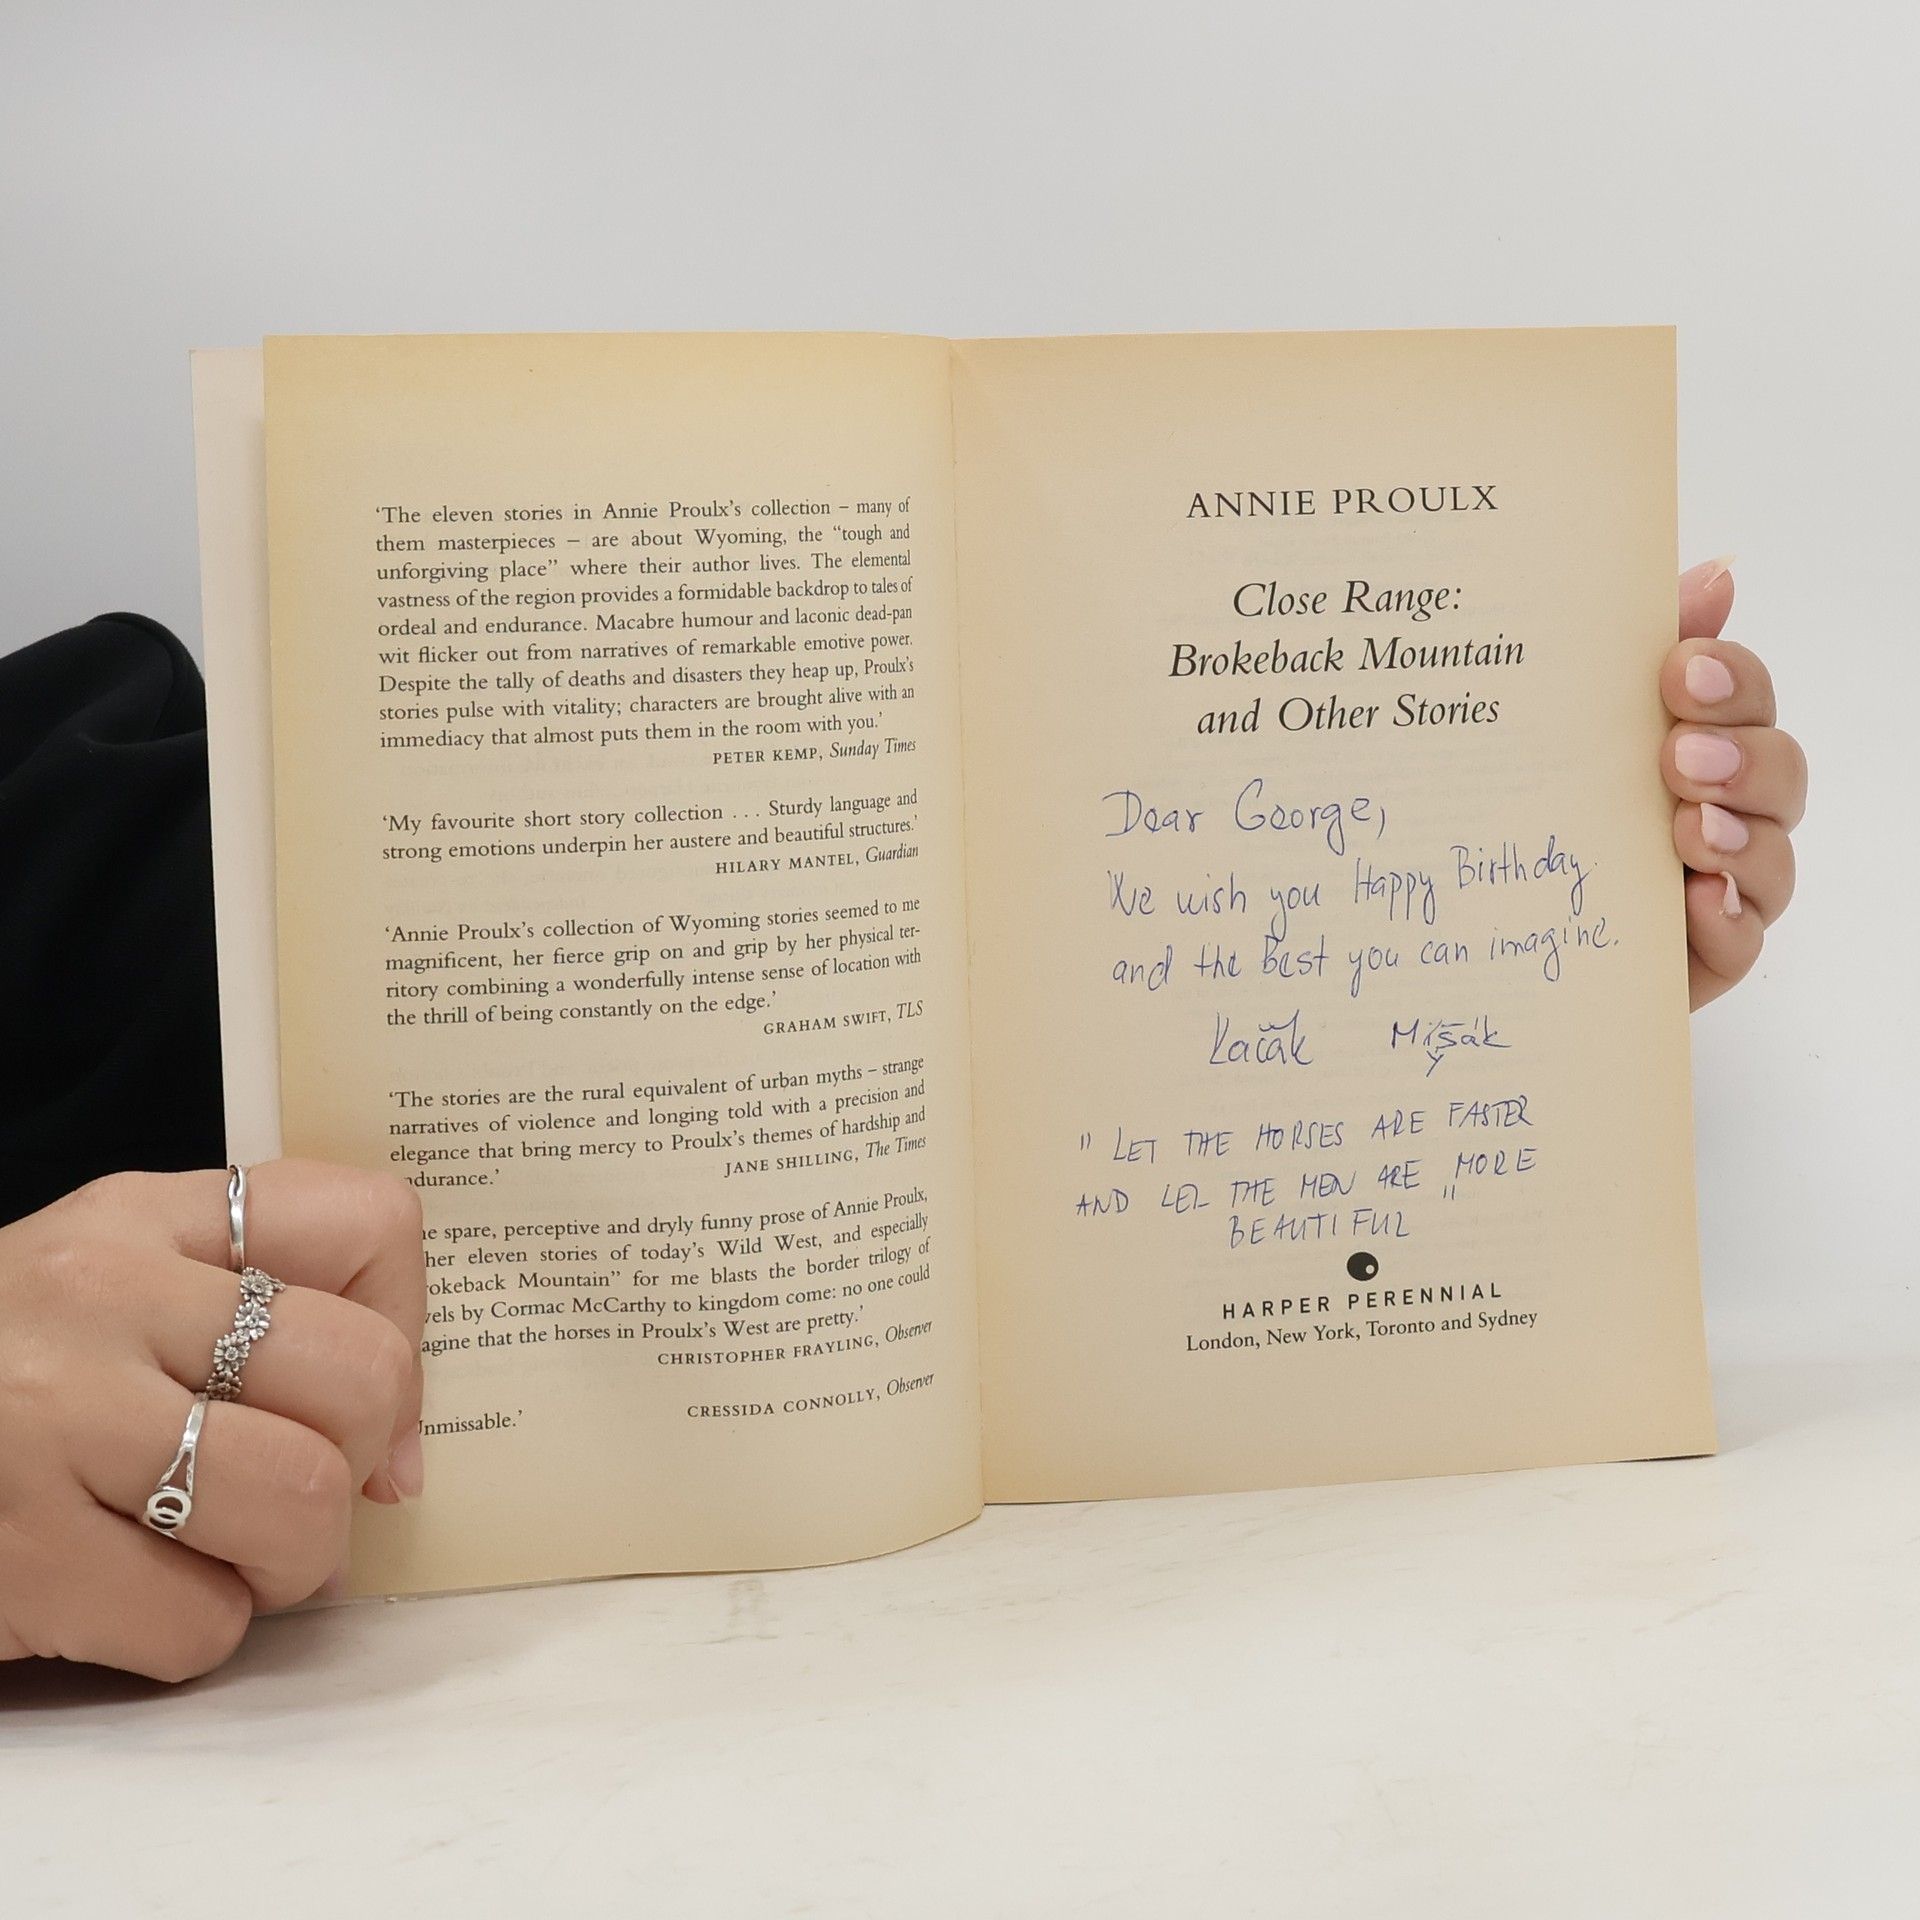 ‘The eleven stories in Annie Proulx’s collection – many of
them masterpieces – are about Wyoming, the “tough and
unforgiving place” where their author lives. The elemental
vastness of the region provides a formidable backdrop to tales of
ordeal and endurance. Macabre humour and laconic dead-pan
wit flicker out from narratives of remarkable emotive power.
Despite the tally of deaths and disasters they heap up, Proulx’s
stories pulse with vitality; characters are brought alive with an
immediacy that almost puts them in the room with you.’
PETER KEMP, Sunday Times
‘My favourite short story collection . . . Sturdy language and
strong emotions underpin her austere and beautiful structures.’
HILARY MANTEL, Guardian
‘Annie Proulx’s collection of Wyoming stories seemed to me
magnificent, her fierce grip on and grip by her physical ter-
ritory combining a wonderfully intense sense of location with
the thrill of being constantly on the edge.’
GRAHAM SWIFT, TLS
‘The stories are the rural equivalent of urban myths – strange
narratives of violence and longing told with a precision and
elegance that bring mercy to Proulx’s themes of hardship and
ndurance.’
JANE SHILLING, The Times
e spare, perceptive and dryly funny prose of Annie Proulx,
her eleven stories of today’s Wild West, and especially
rokeback Mountain” for me blasts the border trilogy of
vels by Cormac McCarthy to kingdom come: no one could
agine that the horses in Proulx’s West are pretty.’
CHRISTOPHER FRAYLING, Observer
nmissable.’ CRESSIDA CONNOLLY, Observer
ANNIE PROULX
Close Range:
Brokeback Mountain
and Other Stories
Dear George,
We wish you Happy Birthday
and the best you can imagine.
Kačák Mišák
y
" LET THE HORSES ARE FASTER
AND LET THE MEN ARE MORE
BEAUTIFUL "
HARPER PERENNIAL
London, New York, Toronto and Sydney